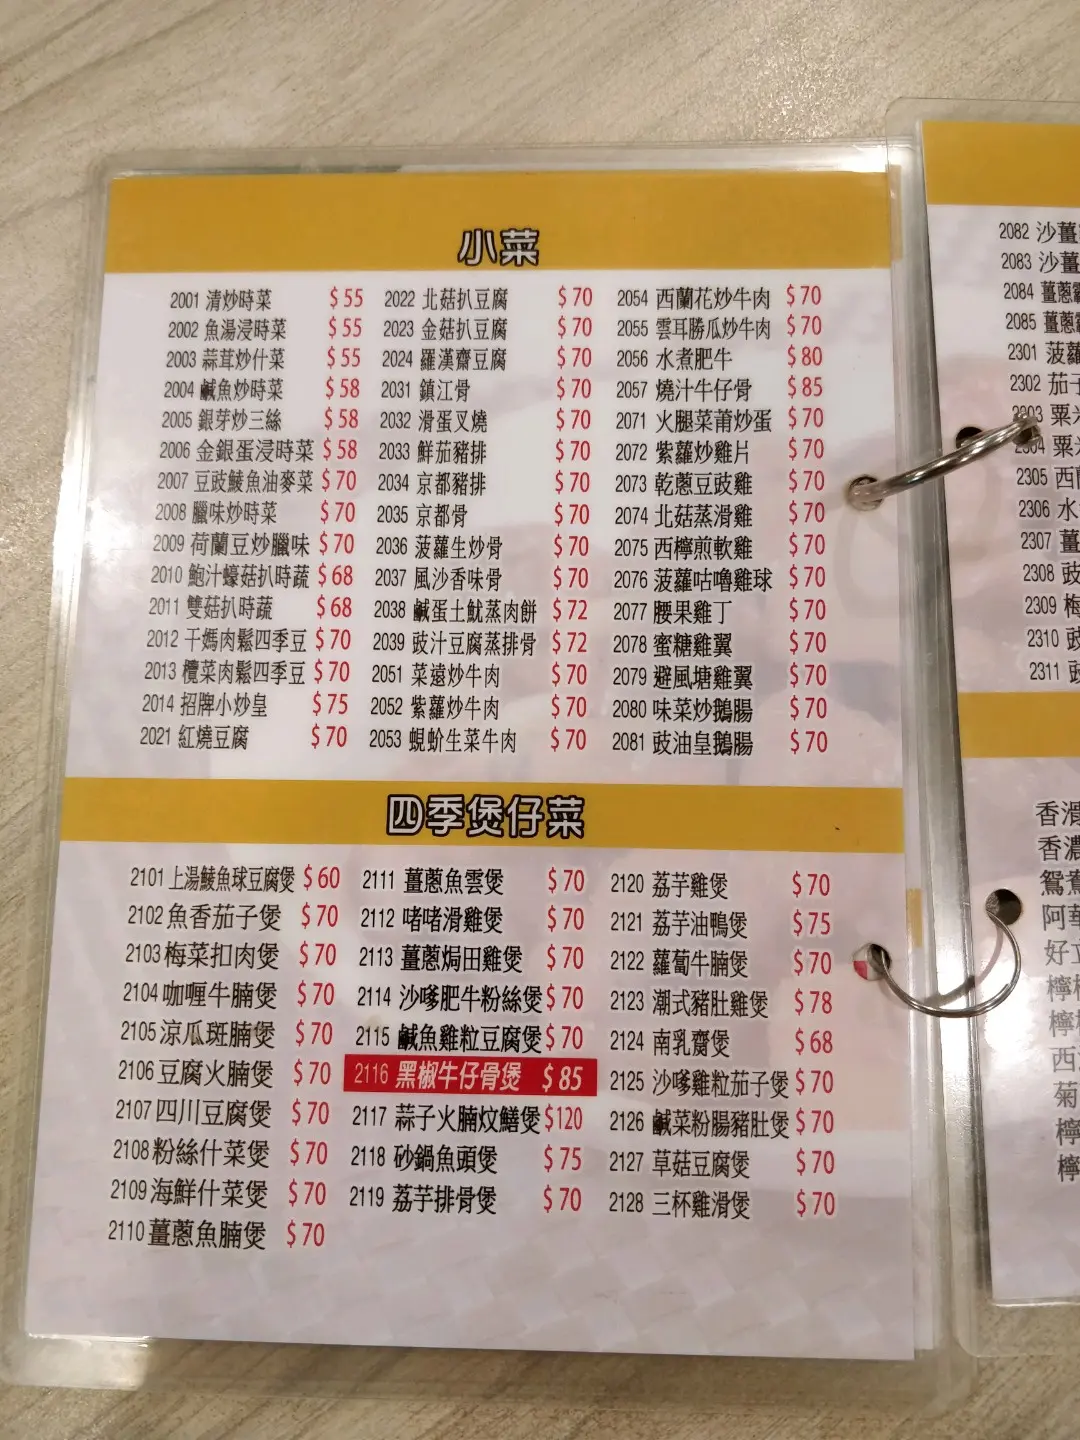 小菜
2001 清炒時菜 $55
2002 魚湯浸時菜 $55
2003 蒜茸炒什菜 $55
2004 鹹魚炒時菜 $58
2005 銀芽炒三絲 $58
2006 金銀蛋浸時菜 $58
2007 豆豉鯪魚油麥菜 $70
2008 臘味炒時菜 $70
2009 荷蘭豆炒臘味 $70
2010 鮑汁蠔菇扒時蔬 $68
2011 雙菇扒時蔬 $68
2012 干媽肉鬆四季豆 $70
2013 欖菜肉鬆四季豆 $70
2014 招牌小炒皇 $75
2021 紅燒豆腐 $70
2022 北菇扒豆腐 $70
2023 金菇扒豆腐 $70
2024 羅漢齋豆腐 $70
2031 鎮江骨 $70
2032 滑蛋叉燒 $70
2033 鮮茄豬排 $70
2034 京都豬排 $70
2035 京都骨 $70
2036 菠蘿生炒骨 $70
2037 風沙香味骨 $70
2038 鹹蛋土魷蒸肉餅 $72
2039 豉汁豆腐蒸排骨 $72
2051 菜遠炒牛肉 $70
2052 紫蘿炒牛肉 $70
2053 蜆蚧生菜牛肉 $70
2054 西蘭花炒牛肉 $70
2055 雲耳勝瓜炒牛肉 $70
2056 水煮肥牛 $80
2057 燒汁牛仔骨 $85
2071 火腿菜莆炒蛋 $70
2072 紫蘿炒雞片 $70
2073 乾蔥豆豉雞 $70
2074 北菇蒸滑雞 $70
2075 西檸煎軟雞 $70
2076 菠蘿咕嚕雞球 $70
2077 腰果雞丁 $70
2078 蜜糖雞翼 $70
2079 避風塘雞翼 $70
2080 味菜炒鵝腸 $70
2081 豉油皇鵝腸 $70
四季煲仔菜
2101 上湯鯪魚球豆腐煲 $60
2102 魚香茄子煲 $70
2103 梅菜扣肉煲 $70
2104 咖喱牛腩煲 $70
2105 涼瓜斑腩煲 $70
2106 豆腐火腩煲 $70
2107 四川豆腐煲 $70
2108 粉絲什菜煲 $70
2109 海鮮什菜煲 $70
2110 薑蔥魚腩煲 $70
2111 薑蔥魚雲煲 $70
2112 啫啫滑雞煲 $70
2113 薑蔥焗田雞煲 $70
2114 沙嗲肥牛粉絲煲 $70
2115 鹹魚雞粒豆腐煲 $70
2116 黑椒牛仔骨煲 $85
2117 蒜子火腩炆鱔煲 $120
2118 砂鍋魚頭煲 $75
2119 荔芋排骨煲 $70
2120 荔芋雞煲 $70
2121 荔芋油鴨煲 $75
2122 蘿蔔牛腩煲 $70
2123 潮式豬肚雞煲 $78
2124 南乳齋煲 $68
2125 沙嗲雞粒茄子煲 $70
2126 鹹菜粉腸豬肚煲 $70
2127 草菇豆腐煲 $70
2128 三杯雞滑煲 $70
2082 沙薑
2083 沙薑
2084 薑蔥
2085 薑蔥
2301 菠蘿
2302 茄子
2303 粟米
2304 粟米
2305 西蘭
2306 水
2307 薑
2308 豉
2309 梅
2310 豉
2311 豉
香滑
香濃
鴛鴦
阿華
好立
檸
檸
西
菊
檸
檸